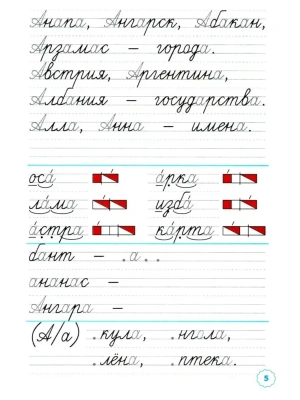 Анапа, Ангарск, Абакан,
Арзамас – города.
Австрия, Аргентина,
Албания – государства.
Алла, Анна – имена.
оса́ а́рка
ла́ма изба́
а́стра ка́рта
бант – .а..
ананас –
Ангара –
(А/а) .кула, .нгола,
.лёна, .птека.
5